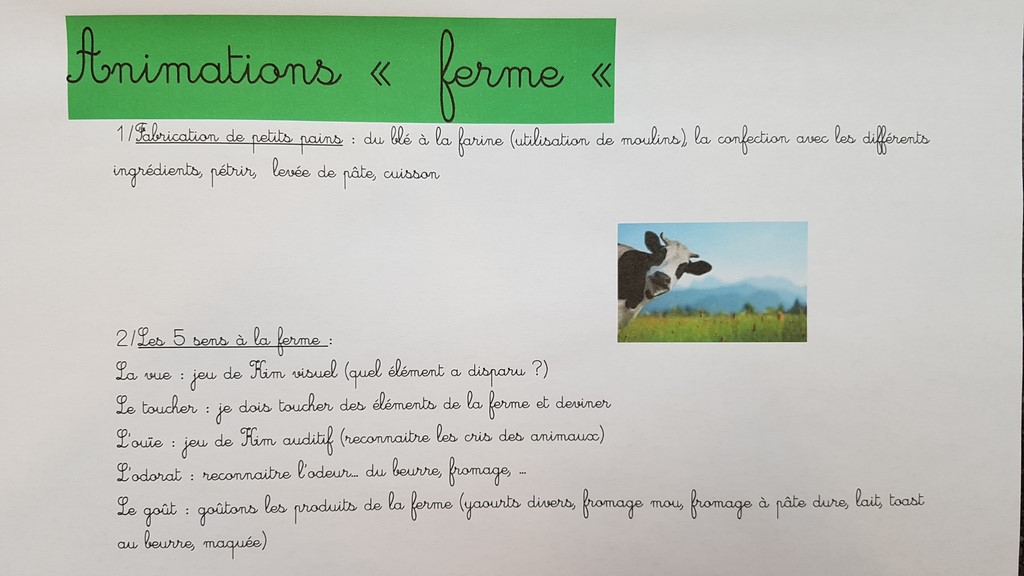 Animations « ferme «
1/Fabrication de petits pains : du blé à la farine (utilisation de moulins), la confection avec les différents
ingrédients, pétrir, levée de pâte, cuisson
2/Les 5 sens à la ferme :
La vue : jeu de Kim visuel (quel élément a disparu ?)
Le toucher : je dois toucher des éléments de la ferme et deviner
L'ouïe : jeu de Kim auditif (reconnaitre les cris des animaux)
L'odorat : reconnaitre l'odeur... du beurre, fromage, ...
Le goût : goûtons les produits de la ferme (yaourts divers, fromage mou, fromage à pâte dure, lait, toast
au beurre, maquée)